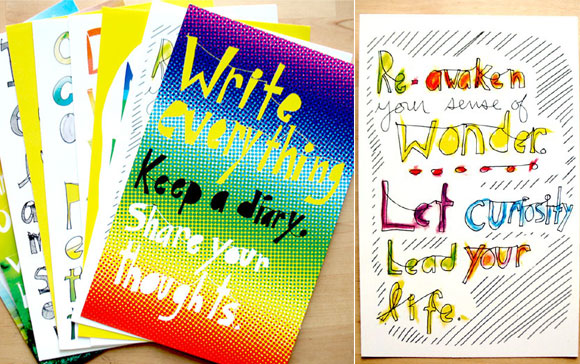 Write
everything
Keep a diary.
Share your
thoughts.
Re-awaken
your sense of
Wonder.
Let curiosity
Lead your
life.